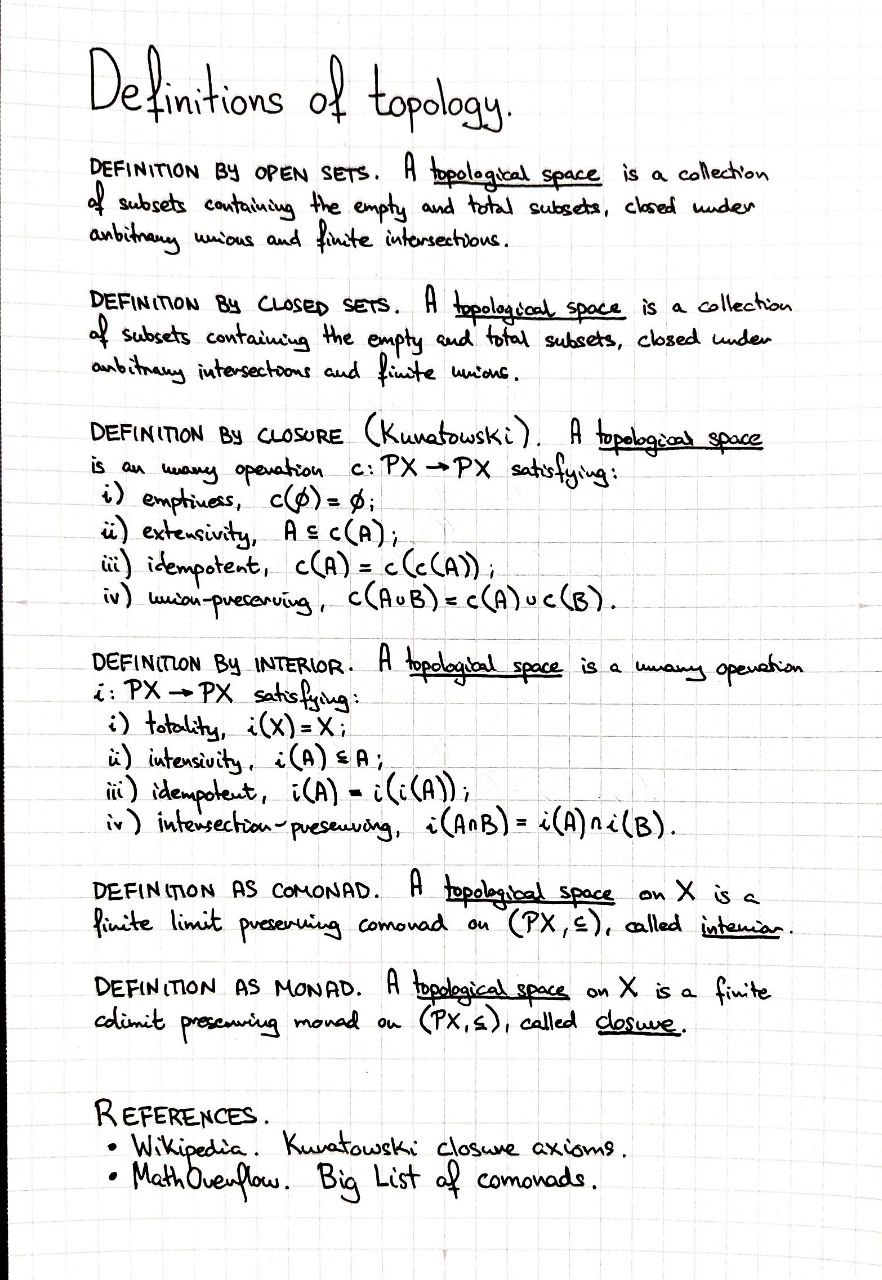 Definitions of topology.
DEFINITION BY OPEN SETS. A topological space is a collection
of subsets containing the empty and total subsets, closed under
arbitrary unions and finite intersections.
DEFINITION BY CLOSED SETS. A topological space is a collection
of subsets containing the empty and total subsets, closed under
arbitrary intersections and finite unions.
DEFINITION BY CLOSURE (Kuratowski). A topological space
is an unary operation c: PX → PX satisfying:
i) emptiness, c(∅) = ∅;
ii) extensivity, A ⊆ c(A);
iii) idempotent, c(A) = c(c(A));
iv) union-preserving, c(A∪B) = c(A)∪c(B).
DEFINITION BY INTERIOR. A topological space is a unary operation
i: PX → PX satisfying:
i) totality, i(X) = X;
ii) intensivity, i(A) ⊆ A;
iii) idempotent, i(A) = i(i(A));
iv) intersection-preserving, i(A∩B) = i(A)∩i(B).
DEFINITION AS COMONAD. A topological space on X is a
finite limit preserving comonad on (PX, ⊆), called interior.
DEFINITION AS MONAD. A topological space on X is a finite
colimit preserving monad on (PX, ⊆), called closure.
REFERENCES.
• Wikipedia. Kuratowski closure axioms.
• MathOverflow. Big List of comonads.